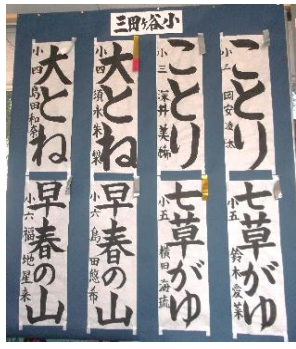 三田ヶ谷小
ことり
小三 岡安凌太
ことり
小三 深井美姉
大とね
小四 須永朱梨
大とね
小四 島田和奏
七草がゆ
小五 鈴木愛菜
七草がゆ
小五 横田海琉
早春の山
小六 島田悠希
早春の山
小六 福地星来